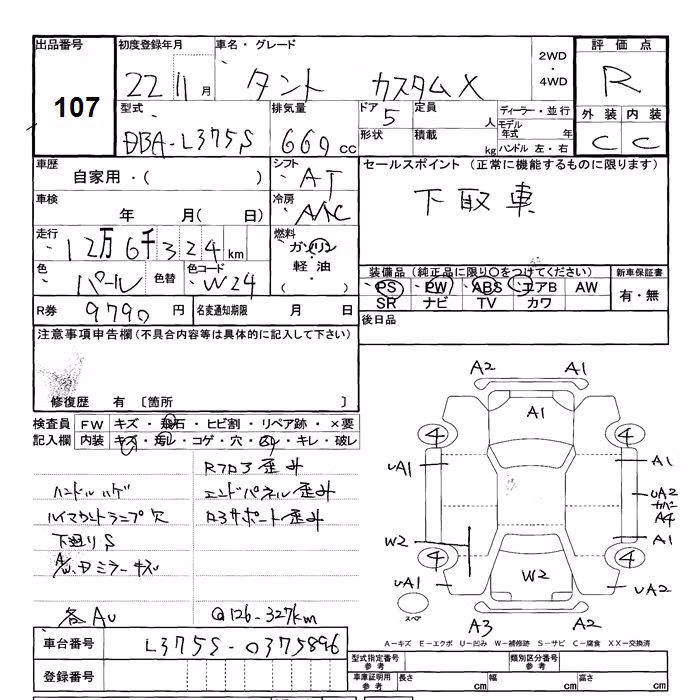 出品番号 107
初度登録年月 22 11月
車名・グレード タント カスタムX
2WD・4WD
評価点 R
外装 内装
C C
型式 DBA-L375S
排気量 660cc
ドア 5
形状
定員 人
積載 kg
ディーラー・並行
モデル年式 年
ハンドル 左・右
車歴 自家用・( )
シフト AT
セールスポイント (正常に機能するものに限ります)
下取車
車検 年 月( 日)
冷房 A/C
走行 12万6千324km
燃料 ガソリン
軽油・
( )
色 パール 色替
色コード W24
装備品 (純正品に限り○をつけてください)
新車保証書
PS PW ABS エアB AW
有・無
SR ナビ TV カワ
R券 9790円
名変通知期限 月 日
後日品
注意事項申告欄(不具合内容等は具体的に記入して下さい)
修復歴 有 〔箇所 〕
検査員記入欄
FW キズ・飛石・ヒビ割・リペア跡・×要
内装 キズ・汚レ・コゲ・穴・ ・キレ・破レ
Rフロア歪み
ハンドルハゲ エンドパネル歪み
ハイマウントランプ穴 ロアサポート歪み
下廻りS
ミラーキズ
各AU @126-327km
車台番号 L375S-0375896
登録番号
A2 A1
A1
4 4
UA1 A1
UA2
カバー
A4
W2 A1
4 4
W2
UA1 UA2
スペア
A3 A2
A－キズ E－エクボ U－凹み W－補修跡 S－サビ C－腐食 XX－交換済
型式指定番号 参考
類別区分番号 参考
車庫証明用 参考 長さ cm 幅 cm 高さ cm